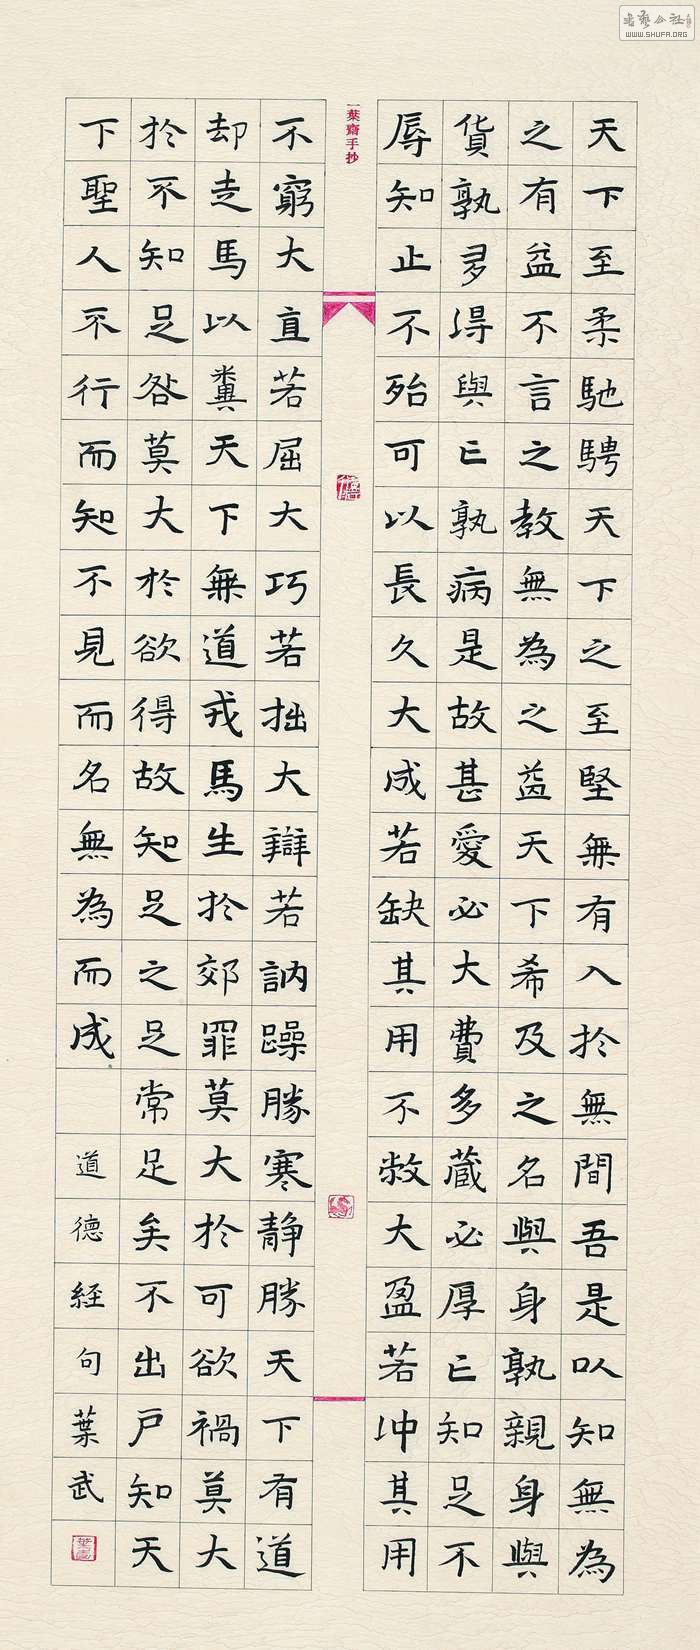 天下至柔馳騁天下之至堅無有入於無間吾是以知無為
之有益不言之教無為之益天下希及之名與身孰親身與
貨孰多得與亡孰病是故甚愛必大費多蔵必厚亡知足不
辱知止不殆可以長久大成若缺其用不敝大盈若沖其用
一葉齋手抄
不窮大直若屈大巧若拙大辯若訥躁勝寒静勝天下有道
却走馬以糞天下無道戎馬生於郊罪莫大於可欲禍莫大
於不知足咎莫大於欲得故知足之足常足矣不出戶知天
下聖人不行而知不見而名無為而成
道德経句葉武
WWW.SHUFA.ORG